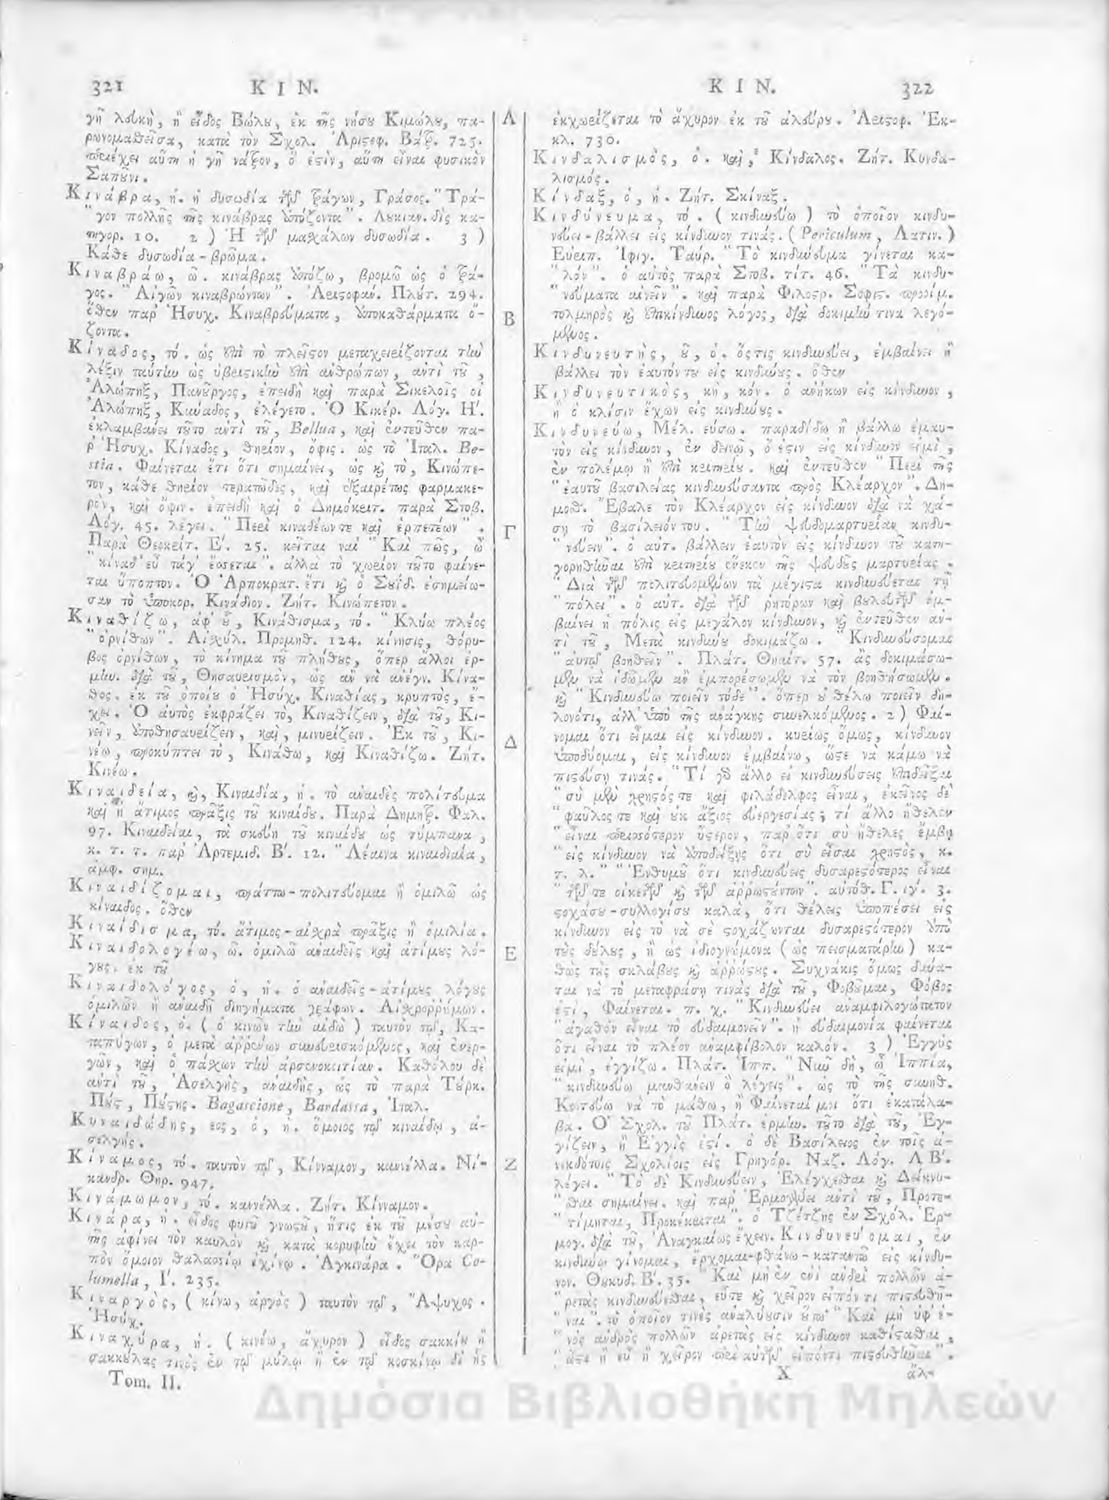 321 ΚΙΝ.
γῆ λευκὴ, ἢ εἶδος Βώλου, ἐκ τῆς νήσου Κιμώλου, πα-
ρωνομασθεῖσα, κατὰ τὸν Σχολ. Ἀριστοφ. Βατρ. 725.
περιέχει αὕτη ἡ γῆ νάτρον, ὅ ἐστιν, αὕτη εἶναι φυσικὸν
Σαπῦνι.
Κινάβρα, ἡ. ἡ δυσωδία τῶν τράγων, Γράσος. "Τρά-
"γον πολλῆς τῆς κινάβρας ἀπόζοντα". Λυκιαν. δὶς κα-
τηγορ. 10. 2) Ἡ τῶν μασχάλων δυσωδία. 3)
Κάθε δυσωδία-βρῶμα.
Κιναβράω, ῶ. κινάβρας ἀπόζω, βρομῶ ὡς ὁ τρά-
γος. "Αἰγῶν κιναβρώντων". Ἀριστοφάν. Πλούτ. 294.
ὅθεν παρ' Ἡσυχ. Κιναβρεύματα, ἀποκαθάρματα ὄ-
ζοντα.
Κίναδος, τό. ὡς ἐπὶ τὸ πλεῖστον μεταχειρίζονται τὴν
λέξιν ταύτην ὡς ὑβριστικὴν ἐπὶ ἀνθρώπων, ἀντὶ τοῦ,
Ἀλώπηξ, Πανοῦργος, ἐπειδὴ καὶ παρὰ Σικελοῖς οἱ
Ἀλώπηξ, Κινάδος, ἐλέγετο. Ὁ Κικέρ. Λόγ. Η'.
ἐκλαμβάνει τοῦτο ἀντὶ τοῦ, Bellua, καὶ ἐντεῦθεν πα-
ρ' Ἡσυχ. Κίναδος, θηρίον, ὄφις. ὡς τὸ Ἰταλ. Be-
stia. Φαίνεται ἔτι ὅτι σημαίνει, ὡς καὶ τὸ, Κινώπε-
τον, κάθε θηρίον τερατῶδες, καὶ ἐξαιρέτως φαρμακε-
ρὸν, καὶ ὄφιν. ἐπειδὴ καὶ ὁ Δημόκριτ. παρὰ Στοβ.
Λόγ. 45. λέγει. "Περὶ κιναδέων τε καὶ ἑρπετέων".
Παρὰ Θεοκρίτ. Ε'. 25. κεῖται ναὶ "Καὶ πῶς, ὦ
"κίναδ' εὖ τάγ' ἔσσεται". ἀλλὰ τὸ χωρίον τοῦτο φαίνε-
ται ὕποπτον. Ὁ Ἁρποκρατ. ἔτι καὶ ὁ Σουΐδ. ἐσημείω-
σαν τὸ ὑποκορ. Κινάδιον. Ζήτ. Κινώπετον.
Κιναθίζω, ἀφ' οὗ, Κινάθισμα, τό. "Κλύω πλέος
"ὀρνίθων". Αἰσχύλ. Προμηθ. 124. κίνησις, θόρυ-
βος ὀρνίθων, τὸ κίνημα τοῦ πλήθους, ὅπερ ἄλλοι ἑρ-
μην. διὰ τοῦ, Θησαυρισμὸν, ὡς ἂν νὰ ἀνέγν. Κίνα-
θος. ἐκ τοῦ ὁποίου ὁ Ἡσύχ. Κιναθίας, κρυπτὸς, ἔ-
χει. Ὁ αὐτὸς ἐκφράζει τὸ, Κιναθίζειν, διὰ τοῦ, Κι-
νεῖν, ἀποθησαυρίζειν, καὶ, μινυρίζειν. Ἐκ τοῦ, Κι-
νέω, προκύπτει τὸ, Κινάθω, καὶ Κιναθίζω. Ζήτ.
Κινέω.
Κιναιδεία, ἢ, Κιναιδία, ἡ. τὸ ἀναιδὲς πολίτευμα
καὶ ἡ ἄτιμος πρᾶξις τοῦ κιναίδου. Παρὰ Δημητρ. Φαλ.
97. Κιναιδεῖαι, τὰ σκεύη τοῦ κιναίδου ὡς τύμπανα,
κ. τ. τ. παρ' Ἀρτεμιδ. Β'. 12. "Λέαινα κιναιδιαία,
ἀμφ. σημ.
Κιναιδίζομαι, πράττω-πολιτεύομαι ἢ ὁμιλῶ ὡς
κίναιδος. ὅθεν
Κιναίδισμα, τό. ἄτιμος-αἰσχρὰ πρᾶξις ἢ ὁμιλία.
Κιναιδολογέω, ῶ. ὁμιλῶ ἀναιδεῖς καὶ ἀτίμους λό-
γους. ἐκ τοῦ
Κιναιδολόγος, ὁ, ἡ. ὁ ἀναιδεῖς-ἀτίμους λόγους
ὁμιλῶν ἢ ἀναιδῆ διηγήματα γράφων. Αἰσχρορρήμων.
Κίναιδος, ὁ. (ὁ κινῶν τὴν αἰδῶ) ταυτὸν τῷ, Κα-
ταπύγων, ὁ μετὰ ἀρρένων συνευρισκόμενος, καὶ ἐνερ-
γῶν, καὶ ὁ πάσχων τὴν ἀρσενοκοιτίαν. Καθόλου δὲ
ἀντὶ τοῦ, Ἀσελγὴς, ἀναιδὴς, ὡς τὸ παρὰ Τούρκ.
Ποὺς, Πούστης. Bagascione, Bardassa, Ἰταλ.
Κυναιδώδης, εος, ὁ, ἡ. ὅμοιος τῷ κιναίδῳ, ἀ-
σελγής.
Κίναμος, τό. ταυτὸν τῷ, Κίνναμον, καννέλλα. Νί-
κανδρ. Θηρ. 947.
Κινάμωμον, τό. καννέλλα. Ζήτ. Κίνναμον.
Κινάρα, ἡ. εἶδος φυτοῦ γνωστοῦ, ἥτις ἐκ τοῦ μέσου αὐ-
τῆς ἀφίνει τὸν καυλὸν καὶ κατὰ κορυφὴν ἔχει τὸν καρ-
πὸν ὅμοιον θαλασσίῳ ἐχίνῳ. Ἀγκινάρα. Ὅρα Co-
lumella, Γ. 235.
Κιναργὸς, (κίνω, ἀργὸς) ταυτὸν τῷ, Ἄψυχος.
Ἡσύχ.
Κιναχύρα, ἡ. (κινέω, ἄχυρον) εἶδος σακκίου ἢ
σακκούλας τινὸς ἐν τῷ μύλῳ ἢ ἐν τῷ κοσκίνῳ δὶ ἧς
Tom. II.
Α
Β
Γ
Δ
Ε
Ζ
ΚΙΝ. 322
ἐκχωρίζεται τὸ ἄχυρον ἐκ τοῦ ἀλεύρου. Ἀριστοφ. Ἐκ-
κλ. 730.
Κινδαλισμὸς, ὁ. καὶ, Κίνδαλος. Ζήτ. Κυνδα-
λισμός.
Κίνδαξ, ὁ, ἡ. Ζήτ. Σκίναξ.
Κινδύνευμα, τό. (κινδυνεύω) τὸ ὁποῖον κινδυ-
νεύει-βάλλει εἰς κίνδυνον τινάς. (Periculum, Λατιν.)
Εὐριπ. Ἰφιγ. Ταύρ. "Τὸ κινδύνευμα γίνεται κα-
"λόν". ὁ αὐτὸς παρὰ Στοβ. τίτ. 46. "Τὰ κινδυ-
"νεύματα αἰνεῖν". καὶ παρὰ Φιλοστρ. Σοφιστ. προοίμ.
τολμηρὸς καὶ ἐπικίνδυνος λόγος, διὰ δοκιμήν τινα λεγό-
μενος.
Κινδυνευτὴς, οῦ, ὁ. ὅστις κινδυνεύει, ἐμβαίνει ἢ
βάλλει τὸν ἑαυτόν του εἰς κινδύνους. ὅθεν
Κινδυνευτικὸς, κὴ, κόν. ὁ ἀνήκων εἰς κίνδυνον,
ἢ ὁ κλίσιν ἔχων εἰς κινδύνους.
Κινδυνεύω, Μέλ. εύσω. παραδίδω ἢ βάλλω ἐμαυ-
τὸν εἰς κίνδυνον, ἐν δεινῷ, ὅ ἐστιν εἰς κίνδυνον εἰμὶ,
ἐν πολέμῳ ἢ ἐπὶ κριτηρίου. καὶ ἐντεῦθεν "Περὶ τῆς
"ἑαυτοῦ βασιλείας κινδυνεύσαντα πρὸς Κλέαρχον". Δη-
μοσθ. Ἔβαλε τὸν Κλέαρχον εἰς κίνδυνον διὰ νὰ χά-
σῃ τὸ βασίλειόν του. "Τὴν ψευδομαρτυρίαν κινδυ-
"νεύειν". ὁ αὐτ. βάλλειν ἑαυτὸν εἰς κίνδυνον τοῦ κατη-
γορηθῆναι ἐπὶ κριτηρίου ἕνεκεν τῆς ψευδοῦς μαρτυρίας.
"Διὰ τῶν πολιτευομένων τὰ μέγιστα κινδυνεύεται τῇ
"πόλει". ὁ αὐτ. διὰ τῶν ῥητόρων καὶ βουλευτῶν ἐμ-
βαίνει ἡ πόλις εἰς μεγάλον κίνδυνον, καὶ ἐντεῦθεν ἀν-
τὶ τοῦ, Μετὰ κινδύνου δοκιμάζω. "Κινδυνεύσομαι
"αὐτῷ βοηθεῖν". Πλάτ. Θεαίτ. 57. ἂς δοκιμάσω-
μεν νὰ ἰδῶμεν ἂν ἐμπορέσωμεν νὰ τὸν βοηθήσωμεν.
καὶ "Κινδυνεύω ποιεῖν τόδε". ὅπερ οὐ θέλω ποιεῖν δη-
λονότι, ἀλλ' ὑπὸ τῆς ἀνάγκης συνελκόμενος. 2) Φαί-
νομαι ὅτι εἶμαι εἰς κίνδυνον. κυρίως ὅμως, κίνδυνον
ὑποδύομαι, εἰς κίνδυνον ἐμβαίνω, ὥστε νὰ κάμω νὰ
πιστεύσῃ τινάς. "Τί γὰρ ἄλλο εἰ κινδυνεύσεις ἐπιδεῖξαι
"σὺ μὲν χρηστός τε καὶ φιλάδελφος εἶναι, ἐκεῖνος δὲ
"φαῦλός τε καὶ οὐκ ἄξιος εὐεργεσίας; τί ἄλλο ἤθελεν
"εἶναι περισσότερον ὕστερον, παρ' ὅτι σὺ ἤθελες ἔμβῃ
"εἰς κίνδυνον νὰ ἀποδείξῃς ὅτι σὺ εἶσαι χρηστὸς, κ.
τ. λ." "Ἐνθυμοῦ ὅτι κινδυνεύεις δυσαρεστότερος εἶναι
"τῶν τε οἰκετῶν καὶ τῶν ἀρρωστάντων". αὐτόθ. Γ. ιγ'. 3.
στοχάσου-συλλογίσου καλὰ, ὅτι θέλεις ὑποπέσει εἰς
κίνδυνον εἰς τὸ νὰ σὲ στοχάζωνται δυσαρεστότερον ἀπὸ
τοὺς δούλους, ἢ ὡς ἰδιογνώμονα (ὡς πεισματάρην) κα-
θὼς τοὺς σκλάβους καὶ ἀρρώστους. Συχνάκις ὅμως δύνα-
ται νὰ τὸ μεταφράσῃ τινὰς διὰ τοῦ, Φοβᾶμαι, Φόβος
ἐστὶ, Φαίνεται. π. χ. "Κινδυνεύει ἀναμφιλογώτατον
"ἀγαθὸν εἶναι τὸ εὐδαιμονεῖν". ἡ εὐδαιμονία φαίνεται
ὅτι εἶναι τὸ πλέον ἀναμφίβολον καλόν. 3) Ἐγγὺς
εἰμὶ, ἐγγίζω. Πλάτ. Ἱππ. "Νῦν δὴ, ὦ Ἱππία,
"κινδυνεύω μανθάνειν ὃ λέγεις". ὡς τὸ τῆς συνηθ.
Κοντεύω νὰ τὸ μάθω, ἢ Φαίνεταί μοι ὅτι ἐκατάλα-
βα. Ὁ Σχολ. τοῦ Πλάτ. ἑρμην. τοῦτο διὰ τοῦ, Ἐγ-
γίζειν, ἢ Ἐγγύς ἐστί. ὁ δὲ Βασίλειος ἐν τοῖς ἀ-
νεκδότοις Σχολίοις εἰς Γρηγόρ. Ναζ. Λόγ. ΛΒ'.
λέγει. "Τὸ δὲ Κινδυνεύειν, Ἐλέγχεσθαι καὶ Δείκνυ-
"σθαι σημαίνει. καὶ παρ' Ἑρμογένει ἀντὶ τοῦ, Προτε-
"τίμηται, Προκέκριται". ὁ Τζέτζης ἐν Σχόλ. Ἑρ-
μογ. διὰ τοῦ, Ἀναγκαίως ἔχειν. Κινδυνεύομαι, ἐν
κινδύνῳ γίνομαι, ἔρχομαι-φθάνω-καταντῶ εἰς κίνδυ-
νον. Θουκυδ. Β'. 35. "Καὶ μὴ ἐν ἑνὶ ἀνδρὶ πολλῶν ἀ-
"ρετὰς κινδυνεύεσθαι, εὖτε καὶ χεῖρον εἰπόντι πιστευθῆ-
"ναι". τὸ ὁποῖον τινὲς ἀναλύουσιν οὕτω "Καὶ μὴ ὑφ' ἑ-
"νὸς ἀνδρὸς πολλῶν ἀρετὰς εἰς κίνδυνον καθίστασθαι,
"ὥστε ἢ εὖ ἢ χεῖρον περὶ αὐτῶν εἰπόντι πιστευθῆναι".
X ἄλ-
Δημόσια Βιβλιοθήκη Μηλεών